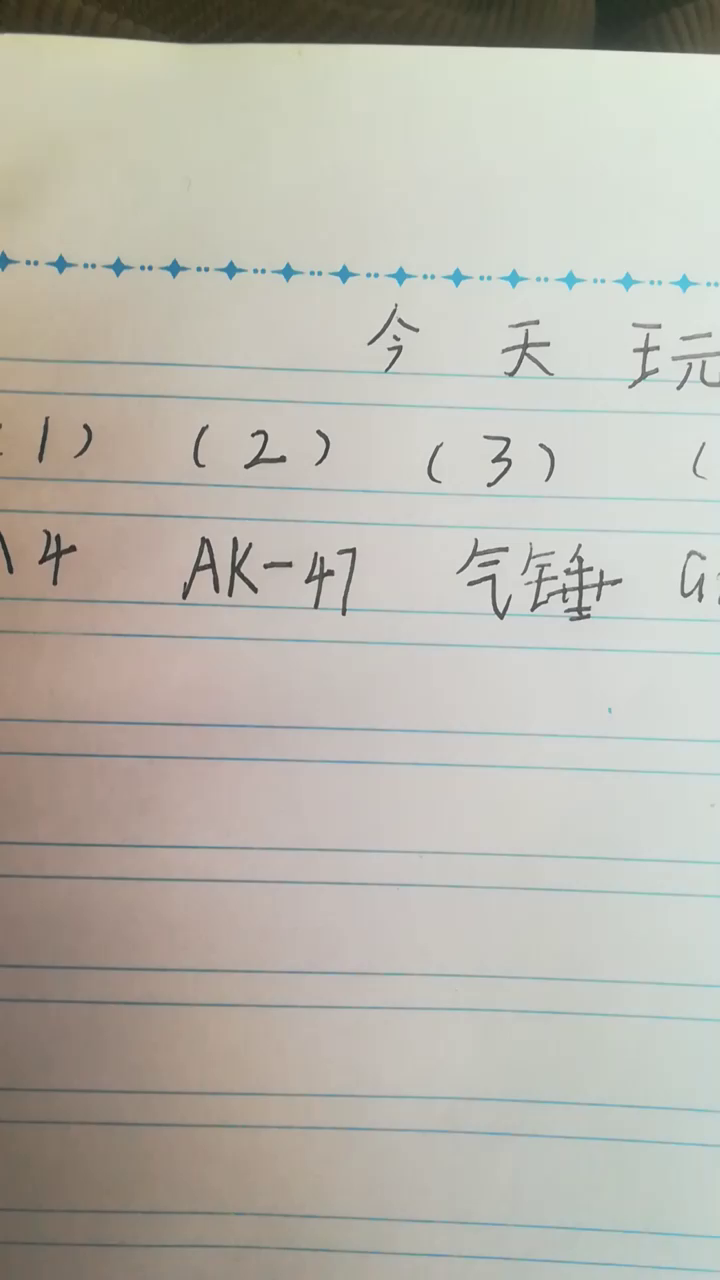 今天玩
(1) (2) (3) (
4 AK-47 气锤 G